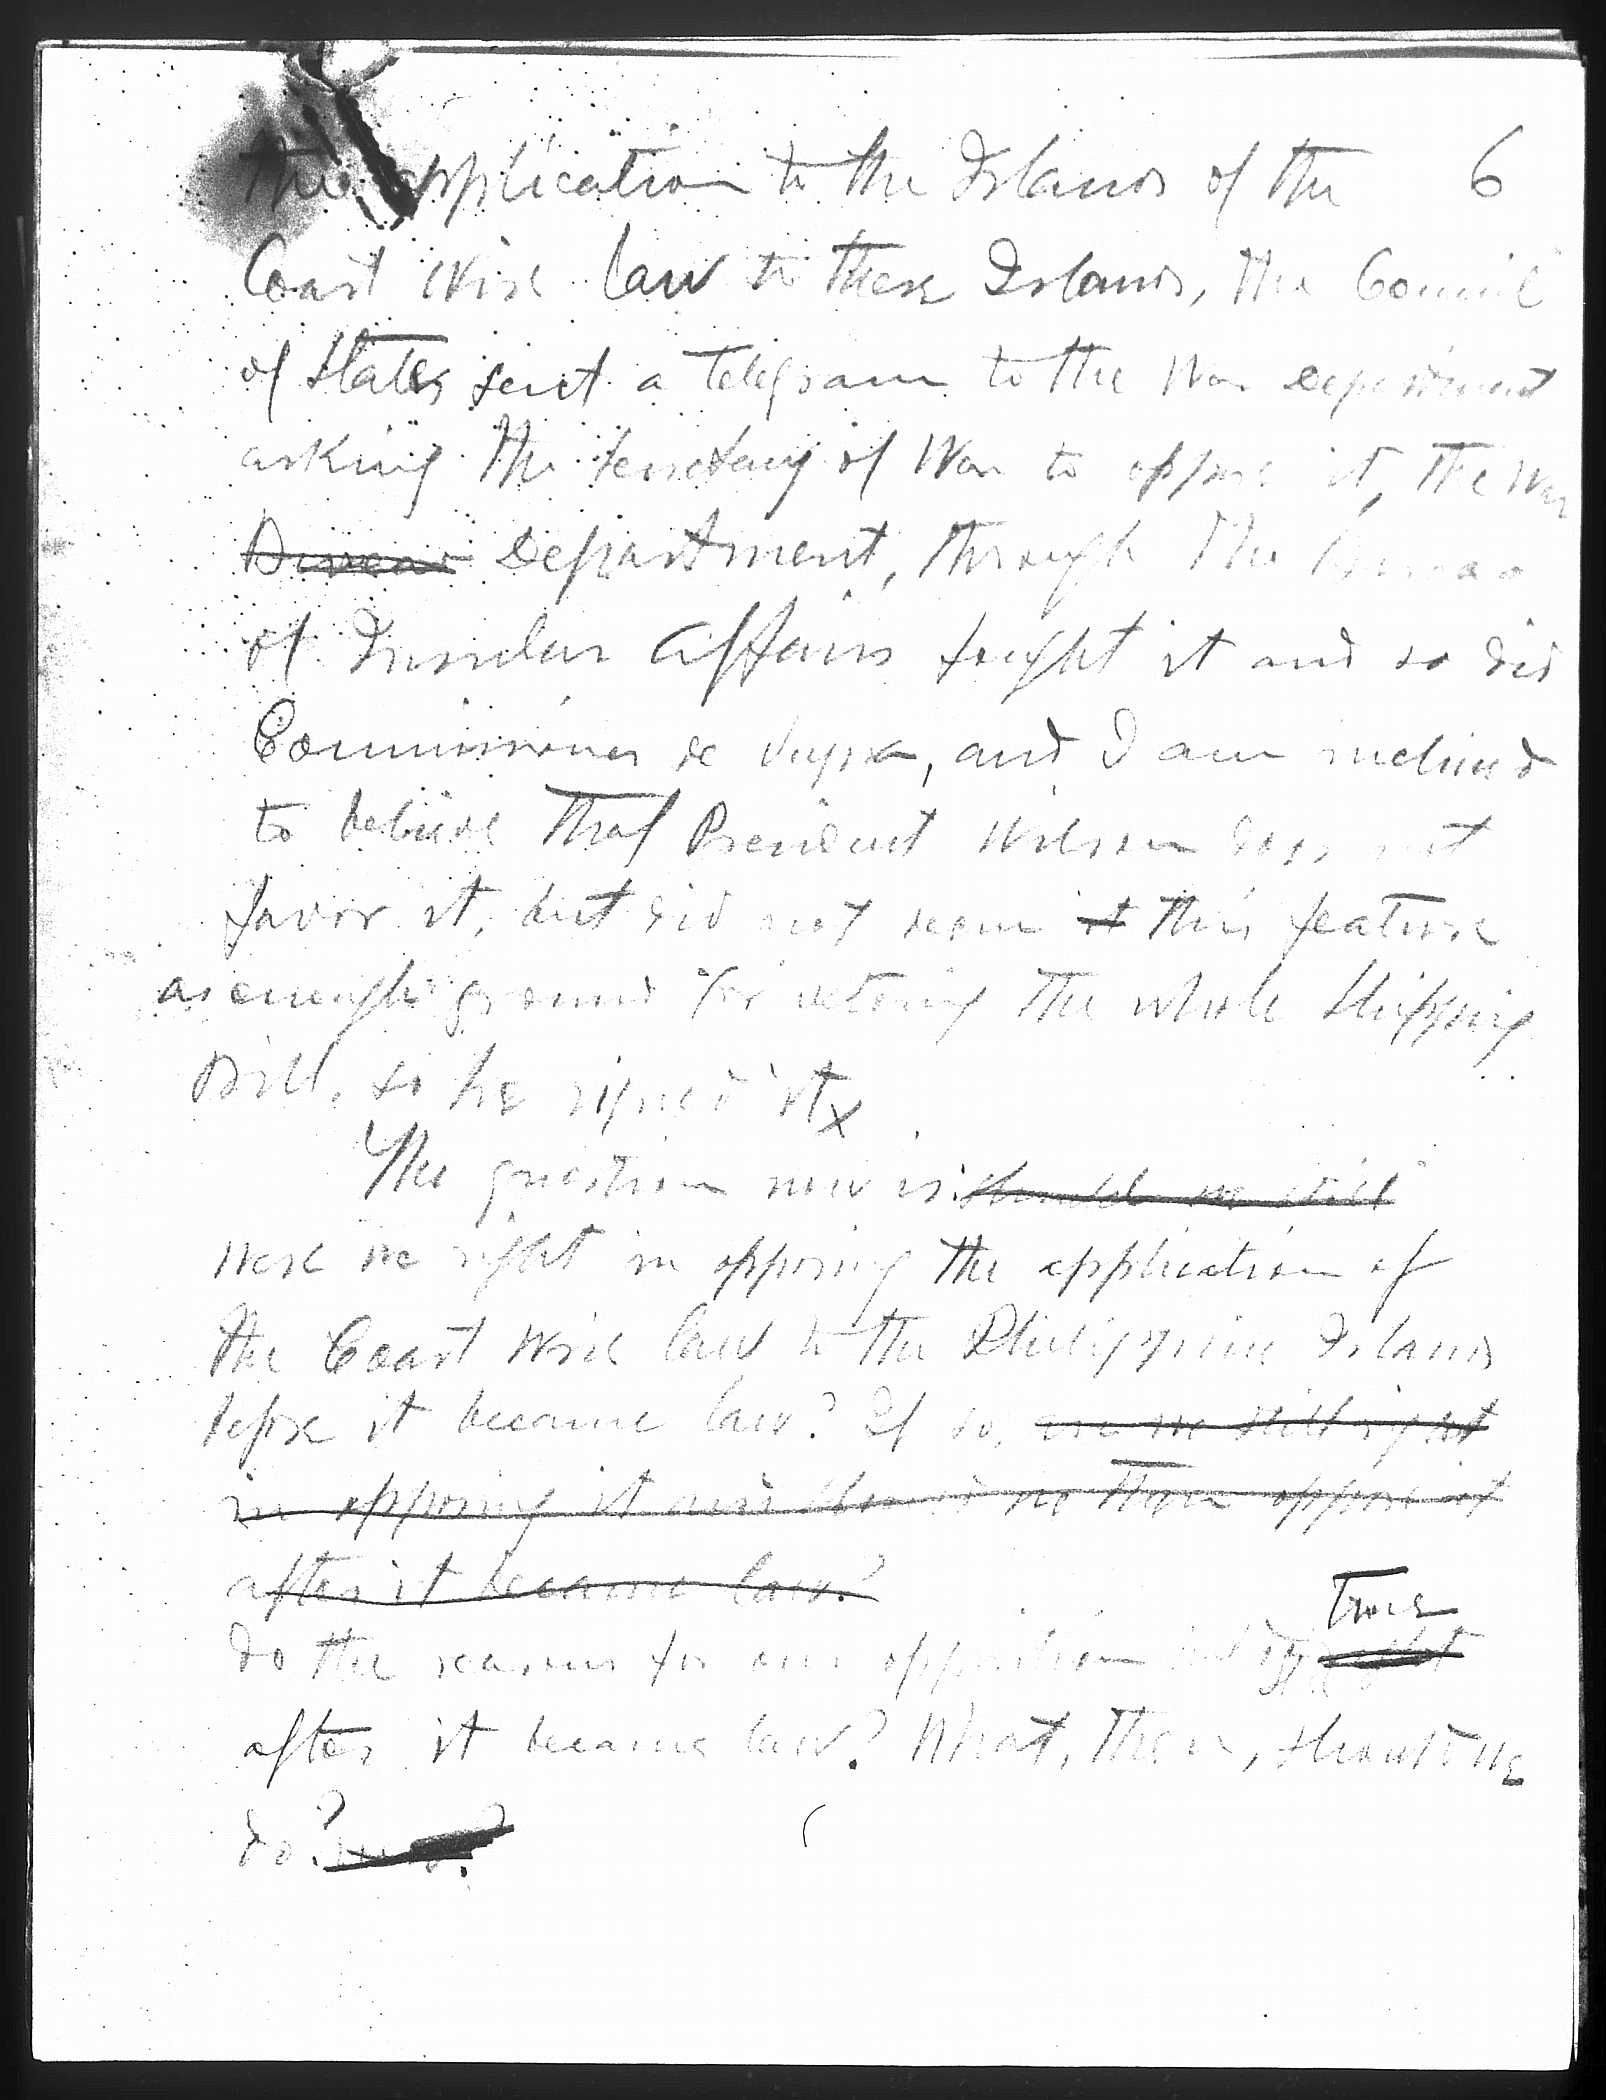 the application to the Islands of the 6
Coast wise law to these Islands, the Council
of States sent a telegram to the War Department
asking the Secretary of War to oppose it, the War
Bureau Department, through the Bureau
of Insular Affairs fought it and so did
Commissioner de Veyra, and I am inclined
to believe that President Wilson does not
favor it, but did not deem it this feature
as enough ground for vetoing the whole Shipping
Bill, so he signed it x
The question now is: should we still
were we right in opposing the application of
the Coast Wise law to the Philippine Islands
before it became law? If so, are we still right
in opposing it and should we then oppose it
after it became law?
true
do the reasons for our opposition hold
after it became law? What, then, should we
do?